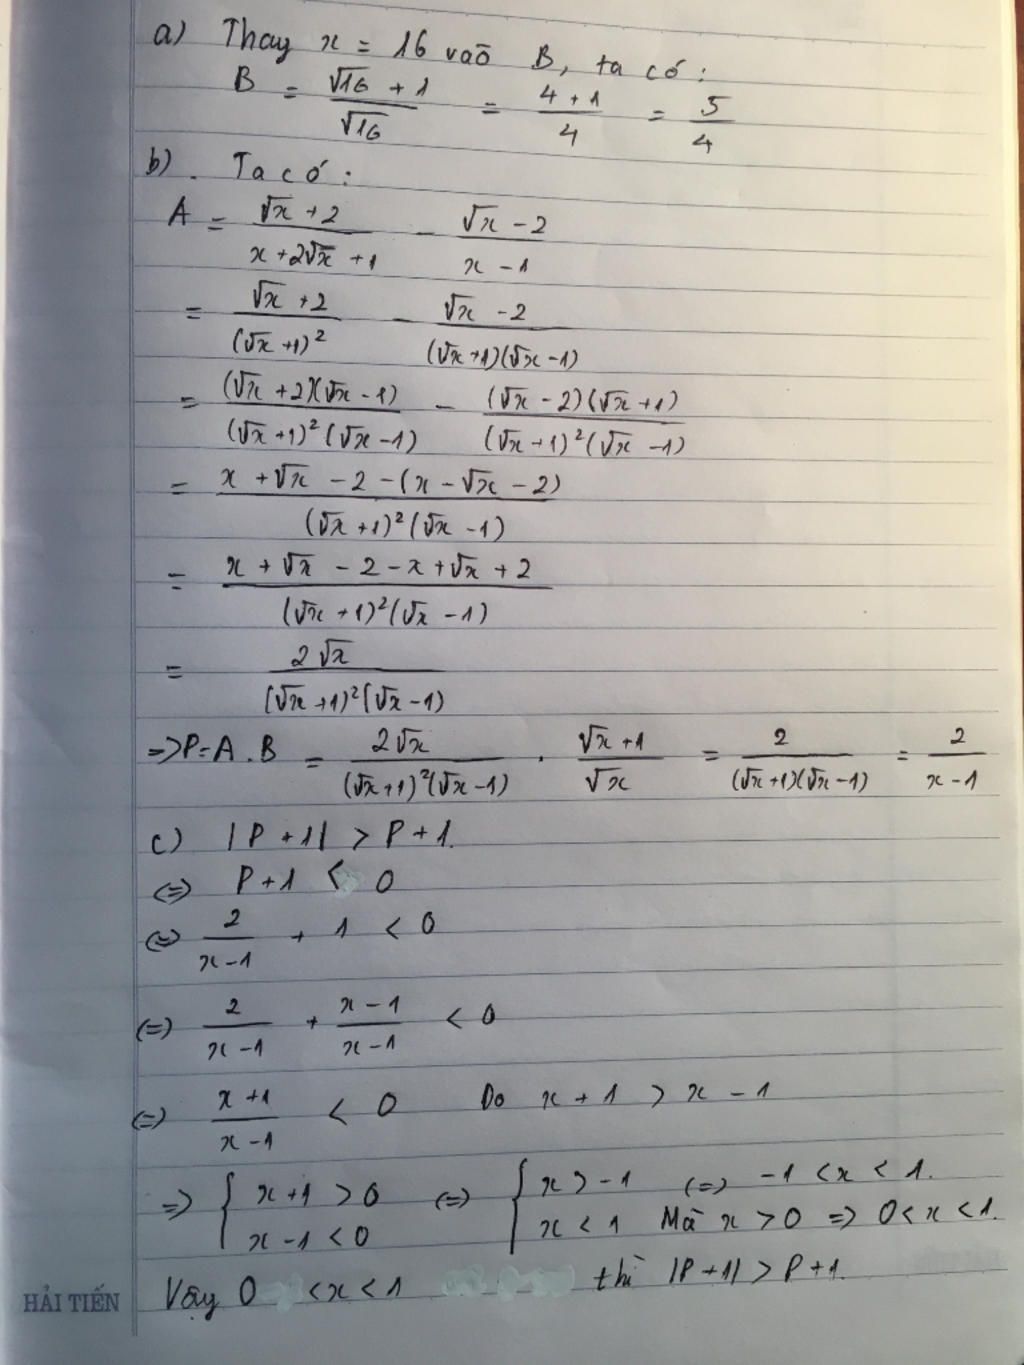 a) Thay x = 16 vaō B, ta có :
B = (√16 + 1)/√16 = (4 + 1)/4 = 5/4
b) . Ta có :
A = (√x + 2)/(x + 2√x + 1) - (√x - 2)/(x - 1)
= (√x + 2)/(√x + 1)² - (√x - 2)/((√x + 1)(√x - 1))
= ((√x + 2)(√x - 1))/((√x + 1)²(√x - 1)) - ((√x - 2)(√x + 1))/((√x + 1)²(√x - 1))
= (x + √x - 2 - (x - √x - 2))/((√x + 1)²(√x - 1))
= (x + √x - 2 - x + √x + 2)/((√x + 1)²(√x - 1))
= 2√x/((√x + 1)²(√x - 1))
=> P = A . B = 2√x/((√x + 1)²(√x - 1)) . (√x + 1)/√x = 2/((√x + 1)(√x - 1)) = 2/(x - 1)
c) |P + 1| > P + 1.
(=) P + 1 < 0
(=) 2/(x - 1) + 1 < 0
(=) 2/(x - 1) + (x - 1)/(x - 1) < 0
(=) (x + 1)/(x - 1) < 0 Do x + 1 > x - 1
=> { x + 1 > 0 (=) { x > -1 (=) -1 < x < 1.
x - 1 < 0 x < 1 Mà x > 0 => 0 < x < 1.
Vậy 0 < x < 1 thì |P + 1| > P + 1.
HẢI TIẾN